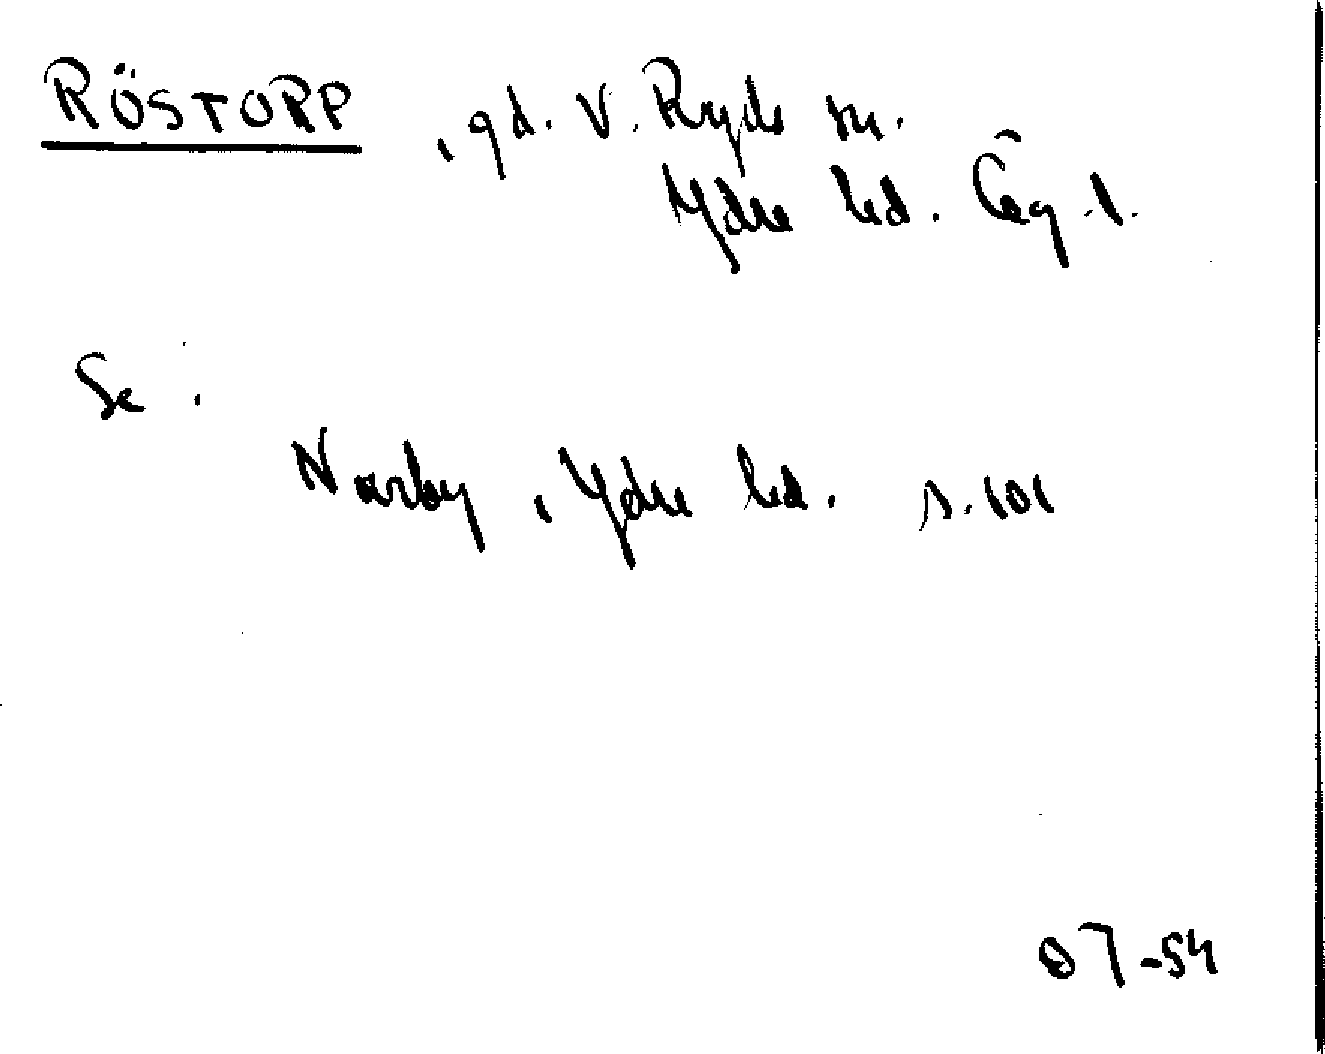 RÖSTORP, gd. V. Ryds sn.
Ydre hd. Ög. l.
Se:
Norrby, Ydre hd. s. 101
OT-54